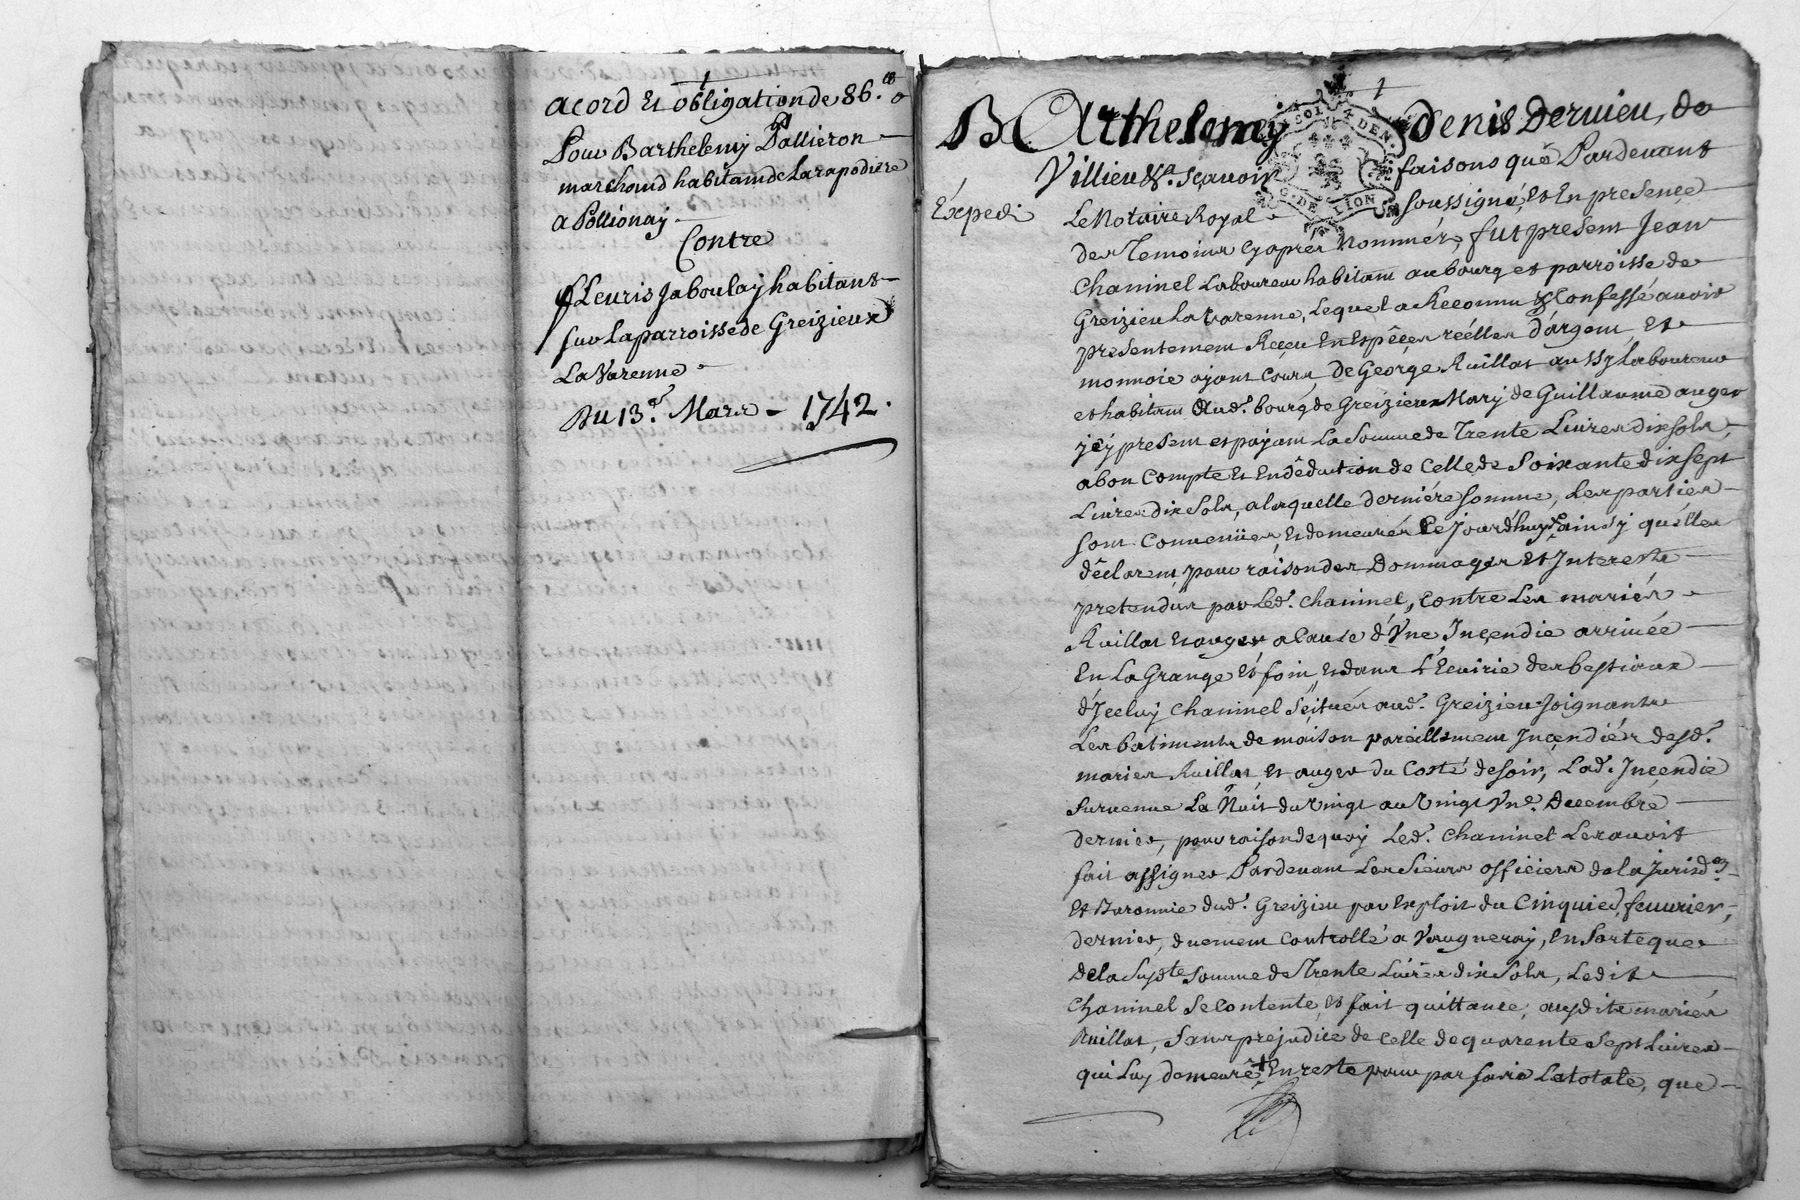 acord et obligation de 86.
Pour Barthelemy Pallieron
marchand habitant de Larapodiere
a Pollionay
Contre
fLeuris Jaboulay habitant
sur la parroisse de Greizieux
La Varenne
Du 13.e Mars - 1742.
1
BArthelemy denis Dervieu, de
Villieu &a. sçavoir faisons que Pardevant
SOL DEN
G. DE LION
Expedi
Le Notaire Royal soussigné, et En presence
des Temoins cy aprés Nommés, fut present Jean
Chaninel Laboureur habitant au bourg et parroisse de
Greizieu La Varenne, Lequel a Reconnu & Confessé avoir
presentement Reçeu En Espéçes réélles d'argent et
monnoie ayant Cours, de George Ruillat aussy Laboureur
et habitant Aud.t bourg de Greizieux Mary de Guillaume auger
jcy present et payant La Somme de Trente Livres dix sols,
a bon Compte et En déduction de Celle de Soixante dix sept
Livres dix sols, a laquelle derniére somme, Les parties
sont Convenües et demeurés Ce Jourd'huy ainsy qu'elles
déclarent, pour raison des Dommages et Interests
pretendus par Led.t Chaninel, Contre Les mariés
Ruillat et auger, a Cause d'Vne Inçendie arrivée
En La Grange et foin, et dans L'Ecuirie des bestiaux
d'Jceluy Chaninel Scituér aud.t Greizieu Joignants
Les batiments de maison pareillement Inçendiés desd.t
maries Ruillat et auger du Costé de soir, Lad.t Inçendie
survenue La Nuit du Vingt au Vingt Vne. Decembre
dernier, pour raison de quoy Led.t Chaninel Les avoit
fait assigner Pardevant Les Sieurs officiers de la Jurisd.on
et Baronnie dud.t Greizieu par Exploit du Cinquie.e fevvrier,
dernier, duement Controllé a Vaugneray, En Sorte que
de la Susd.te somme de Trente Livres dix sols, Ledit
Chaninel Se Contente, et fait quittance, ausdits mariés
Ruillat, Sans prejudice de Celle de quarente Sept Livres
qui Luy demeure + En reste pour par faire La totale, que